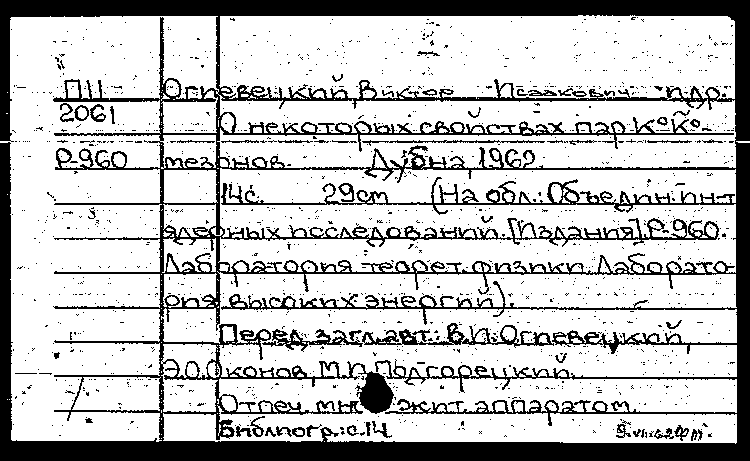 ПII Огиевецкий, Виктор Исаакович и др.
2061 О некоторых свойствах пар K° K̃°-
Р-960 мезонов. Дубна, 1962.
14с. 29cm (На обл.: Объедин. ин-т
ядерных исследований. [Издания] Р-960.
Лаборатория теорет. физики. Лаборато-
рия высоких энергий).
Перед загл. авт.: В.И. Огиевецкий,
Э.О. Оконов, М.И. Подгорецкий.
Отпеч. множит. аппаратом.
Библиогр.: с. 14